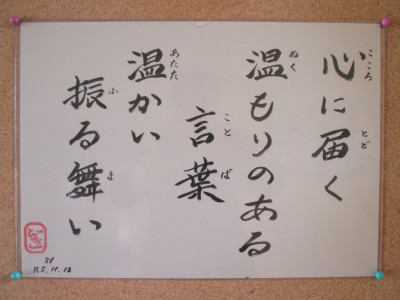 心に届く
温もりのある
言葉
温かい
振る舞い
こころ
とど
ぬく
ことば
あたた
ふ
ま
R5.11.12